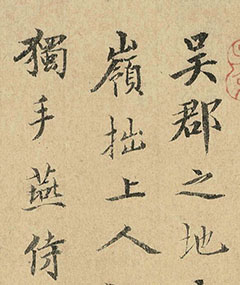 吴郡之地
嶺拙上人
獨手燕侍